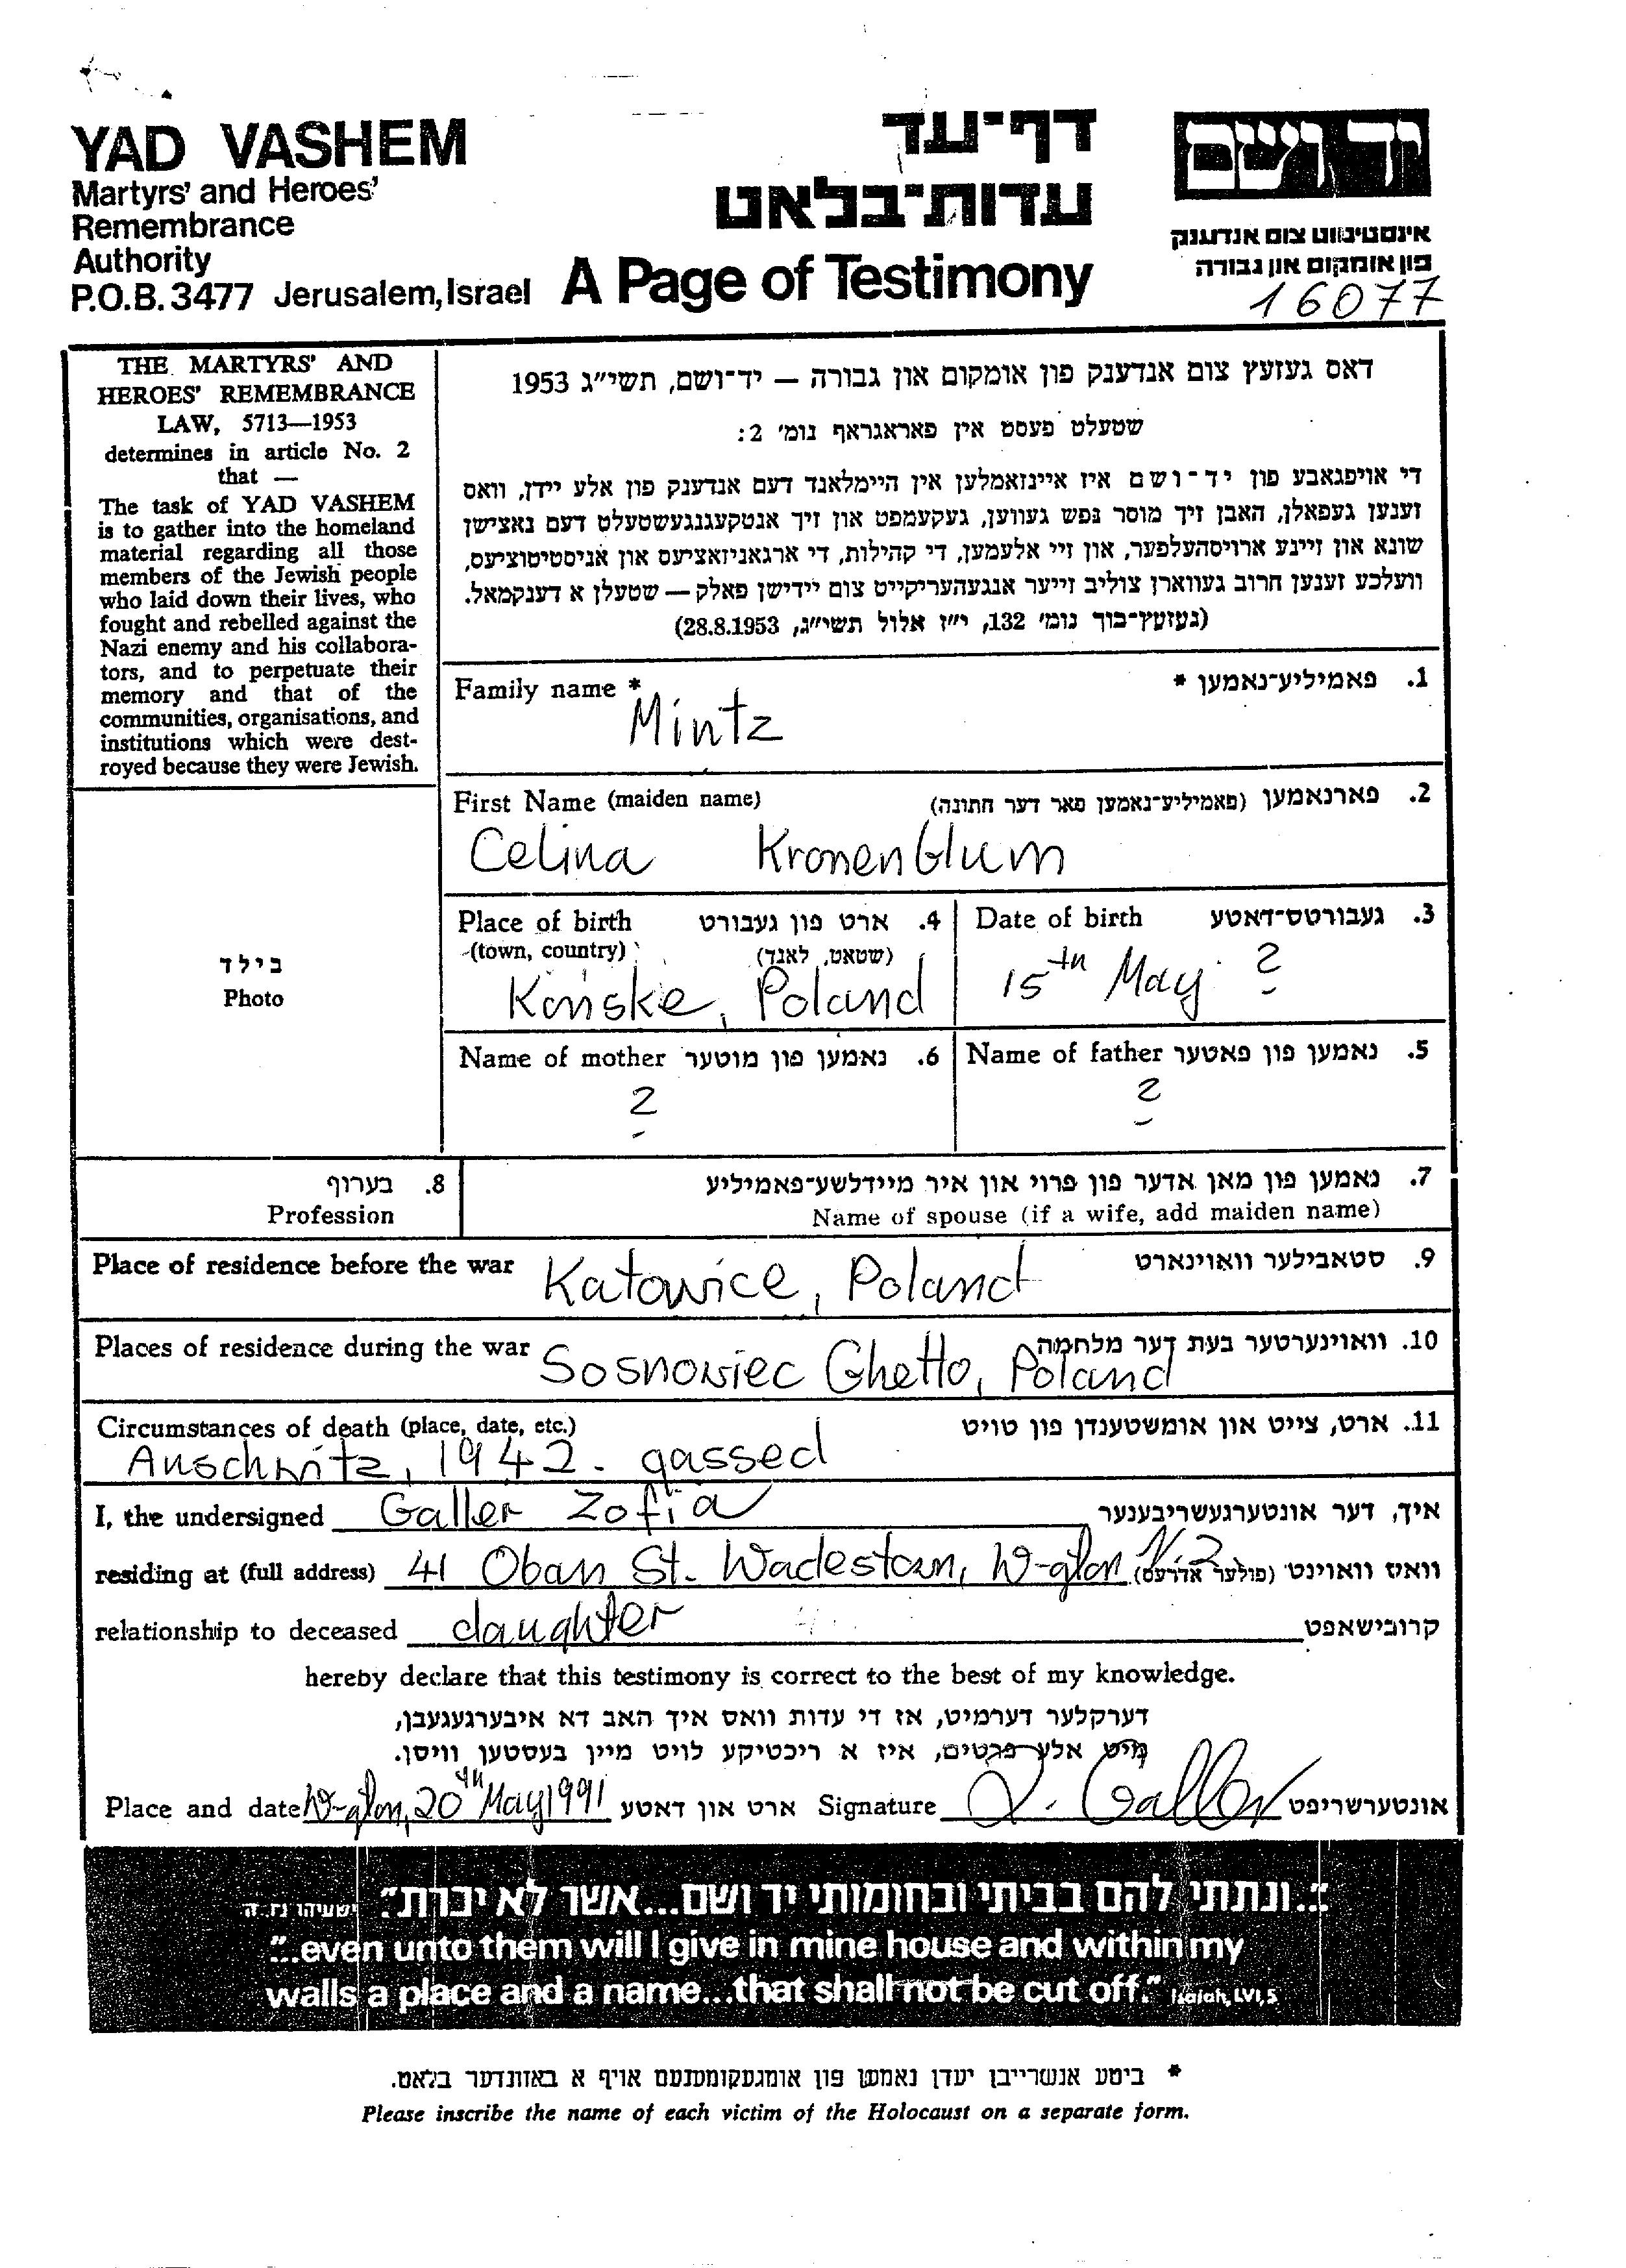 YAD VASHEM
Martyrs' and Heroes'
Remembrance
Authority
P.O.B. 3477 Jerusalem, Israel
דף־עד
עדות־בלאט
A Page of Testimony
יד ושם
אינסטיטוט צום אנדענק
פון אומקום און גבורה
16077
THE MARTYRS' AND
HEROES' REMEMBRANCE
LAW, 5713—1953
determines in article No. 2
that —
The task of YAD VASHEM
is to gather into the homeland
material regarding all those
members of the Jewish people
who laid down their lives, who
fought and rebelled against the
Nazi enemy and his collabora-
tors, and to perpetuate their
memory and that of the
communities, organisations, and
institutions which were dest-
royed because they were Jewish.
דאס געזעץ צום אנדענק פון אומקום און גבורה — יד־ושם, תשי״ג 1953
שטעלט פעסט אין פאראגראף נומ׳ 2:
די אויפגאבע פון יד־ושם איז איינזאמלען אין היימלאנד דעם אנדענק פון אלע יידן, וואס
זענען געפאלן, האבן זיך מוסר נפש געווען, געקעמפט און זיך אנטקעגנגעשטעלט דעם נאצישן
שונא און זיינע ארויסהעלפער, און זיי אלעמען, די קהילות, די ארגאניזאציעס און אניסטיטוציעס,
וועלכע זענען חרוב געווארן צוליב זייער אנגעהעריקייט צום יידישן פאלק — שטעלן א דענקמאל.
(געזעץ־בוך נומ׳ 132, י״ז אלול תשי״ג, 28.8.1953)
Family name * 1. פאמיליע־נאמען *
Mintz
First Name (maiden name) 2. פארנאמען (פאמיליע־נאמען פאר דער חתונה)
Celina Kronenblum
Place of birth 4. ארט פון געבורט
(town, country) (שטאט, לאנד)
Końskie, Poland
Date of birth 3. געבורטס־דאטע
15th May ?
בילד
Photo
Name of mother 6. נאמען פון מוטער
?
Name of father 5. נאמען פון פאטער
?
8. בערוף
Profession
7. נאמען פון מאן אדער פון פרוי און איר מיידלשע־פאמיליע
Name of spouse (if a wife, add maiden name)
Place of residence before the war Katowice, Poland 9. סטאבילער וואוינארט
Places of residence during the war Sosnowiec Ghetto, Poland 10. וואוינערטער בעת דער מלחמה
Circumstances of death (place, date, etc.) 11. ארט, צייט און אומשטענדן פון טויט
Auschwitz, 1942. gassed
I, the undersigned Galler Zofia איך, דער אונטערגעשריבענער
residing at (full address) 41 Oban St. Wadestown, W-gton N.Z וואס וואוינט (פולער אדרעס)
relationship to deceased daughter קרובישאפט
hereby declare that this testimony is correct to the best of my knowledge.
דערקלער דערמיט, אז די עדות וואס איך האב דא איבערגעגעבן,
מיט אלע פרטים, איז א ריכטיקע לויט מיין בעסטען וויסן.
Place and date W-gton, 20th May 1991 ארט און דאטע Signature Z. Galler אונטערשריפט
״...ונתתי להם בביתי ובחומותי יד ושם...אשר לא יכרת״ ישעיהו נו ה
"...even unto them will I give in mine house and within my
walls a place and a name...that shall not be cut off." Isaiah, LVI, 5
* ביטע אנשרייבן יעדן נאמען פון אומגעקומענעם אויף א באזונדער בלאט.
Please inscribe the name of each victim of the Holocaust on a separate form.